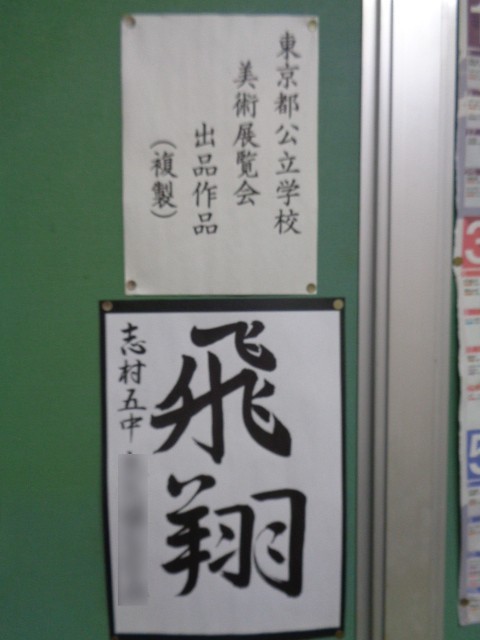 東京都公立学校
美術展覧会
出品作品
（複製）
飛翔
志村五中